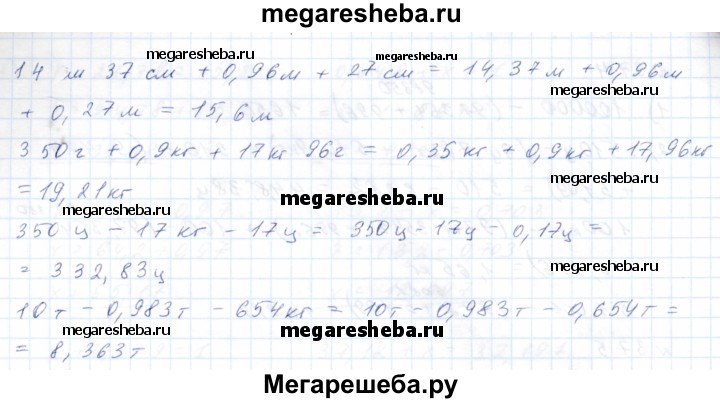 megaresheba.ru
megaresheba.ru megaresheba.ru
14 м 37 см + 0,96 м + 27 см = 14,37 м + 0,96 м
+ 0,27 м = 15,6 м
megaresheba.ru
350 г + 0,9 кг + 17 кг 96 г = 0,35 кг + 0,9 кг + 17,96 кг
megaresheba.ru
= 19,21 кг
megaresheba.ru megaresheba.ru
350 ц - 17 кг - 17 ц = 350 ц - 17 ц - 0,17 ц =
= 332,83 ц
megaresheba.ru
10 т - 0,983 т - 654 кг = 10 т - 0,983 т - 0,654 т =
megaresheba.ru megaresheba.ru megaresheba.ru
= 8,363 т
Мегарешеба.ру